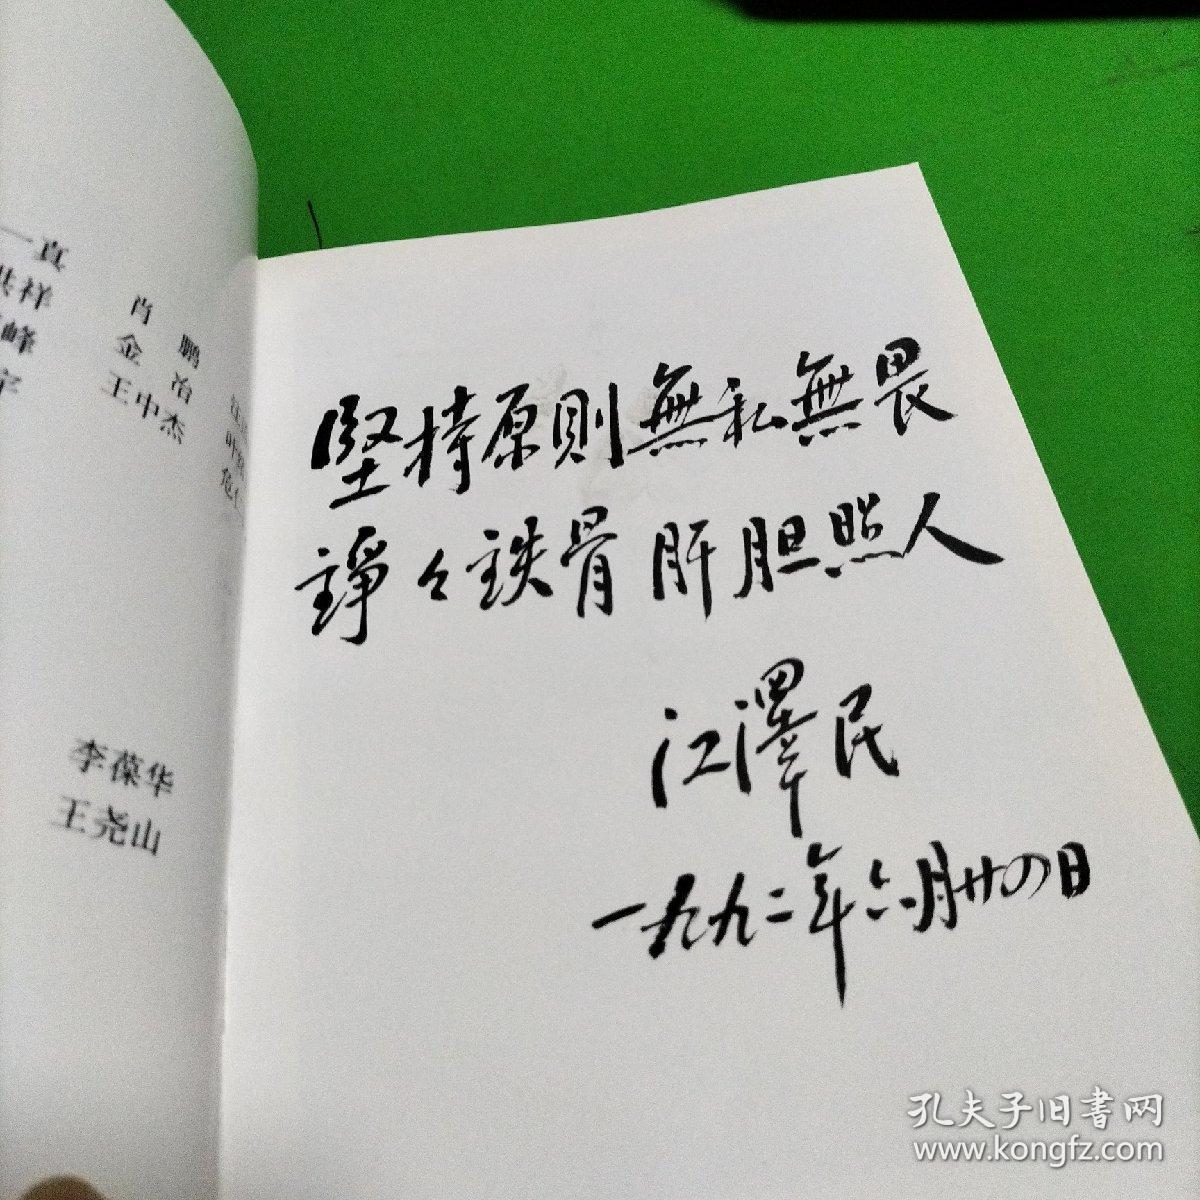 一真
祥 肖 鹏
峰 金 冶
王中杰
李葆华
王尧山
堅持原則無私無畏
錚々鉄骨肝胆照人
江澤民
一九九二年六月廿四日
孔夫子旧書网
www.kongfz.com